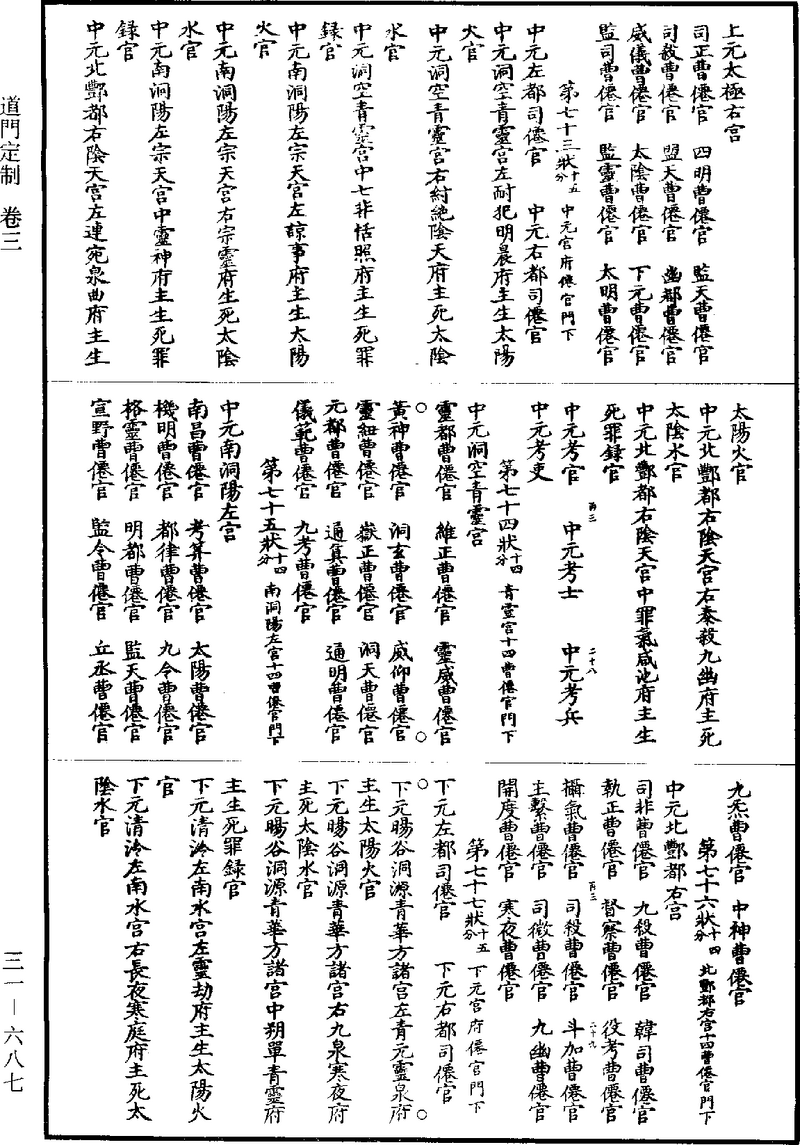 上元太極右宮
司正曹僊官　四明曹僊官　監天曹僊官
司殺曹僊官　盟天曹僊官　幽都曹僊官
威儀曹僊官　太陰曹僊官　下元曹僊官
監司曹僊官　監靈曹僊官　太明曹僊官
第七十三狀十五分　中元宮府僊官門下
中元左都司僊官　中元右都司僊官
中元洞空青靈宮左耐犯明晨府主生太陽
火官
中元洞空青靈宮右紂絶陰天府主死太陰
水官
中元洞空青靈宮中七非恬照府主生死罪
録官
中元南洞陽左宗天宮左諒事府主生太陽
火官
中元南洞陽左宗天宮右宗靈府生死太陰
水官
中元南洞陽左宗天宮中靈神府主生死罪
録官
中元北酆都右陰天宮左連宛泉曲府主生
太陽火官
中元北酆都右陰天宮右泰殺九幽府主死
太陰水官
中元北酆都右陰天宮中罪氣咸池府主生
死罪録官
中元考官　中元考士　中元考兵
丙三　二十八
中元考吏
第七十四狀十四分　青靈宮十四曹僊官門下
中元洞空青靈宮
靈都曹僊官　維正曹僊官　靈威曹僊官
黃神曹僊官　洞玄曹僊官　威仰曹僊官
靈紐曹僊官　嶽正曹僊官　洞天曹僊官
元都曹僊官　通真曹僊官　通明曹僊官
儀範曹僊官　九考曹僊官
第七十五狀十四分　南洞陽左宮十四曹僊官門下
中元南洞陽左宮
南昌曹僊官　考算曹僊官　太陽曹僊官
機明曹僊官　都律曹僊官　九令曹僊官
格靈曹僊官　明都曹僊官　監天曹僊官
宣野曹僊官　監令曹僊官　丘丞曹僊官
九炁曹僊官　中神曹僊官
第七十六狀十四分　北酆都右宮十四曹僊官門下
中元北酆都右宮
司非曹僊官　九殺曹僊官　韓司曹僊官
執正曹僊官　督察曹僊官　役考曹僊官
丙三　二十九
攝氣曹僊官　司殺曹僊官　斗加曹僊官
主繫曹僊官　司徵曹僊官　九幽曹僊官
開度曹僊官　寒夜曹僊官
第七十七狀十五分　下元宮府僊官門下
下元左都司僊官　下元右都司僊官
下元暘谷洞源青華方諸宮左青元靈泉府
主生太陽火官
下元暘谷洞源青華方諸宮右九泉寒夜府
主死太陰水官
下元暘谷洞源青華方諸宮中朔單青靈府
主生死罪録官
下元清泠左南水宮左靈劫府主生太陽火
官
下元清泠左南水宮右長夜寒庭府主死太
陰水官
道門定制　卷三
三一—六八七